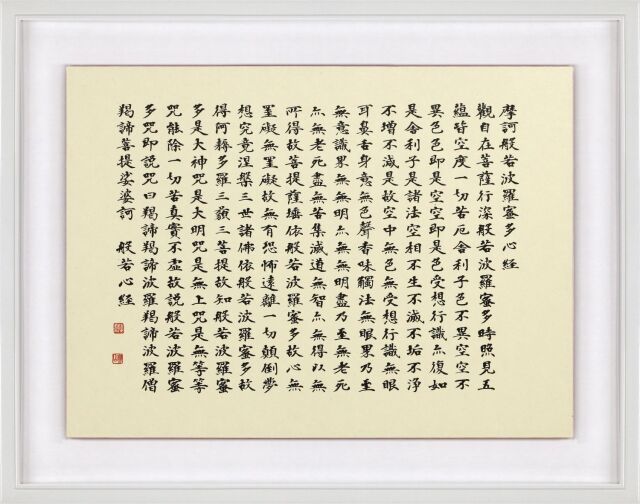 摩訶般若波羅蜜多心経
觀自在菩薩行深般若波羅蜜多時照見五
蘊皆空度一切苦厄舍利子色不異空空不
異色色即是空空即是色受想行識亦復如
是舍利子是諸法空相不生不滅不垢不淨
不增不減是故空中無色無受想行識無眼
耳鼻舌身意無色聲香味觸法無眼界乃至
無意識界無無明亦無無明盡乃至無老死
亦無老死盡無苦集滅道無智亦無得以無
所得故菩提薩埵依般若波羅蜜多故心無
罣礙無罣礙故無有恐怖遠離一切顛倒夢
想究竟涅槃三世諸佛依般若波羅蜜多故
得阿耨多羅三藐三菩提故知般若波羅蜜
多是大神咒是大明咒是無上咒是無等等
咒能除一切苦真實不虛故説般若波羅蜜
多咒即説咒曰羯諦羯諦波羅羯諦波羅僧
羯諦菩提娑婆訶 般若心経